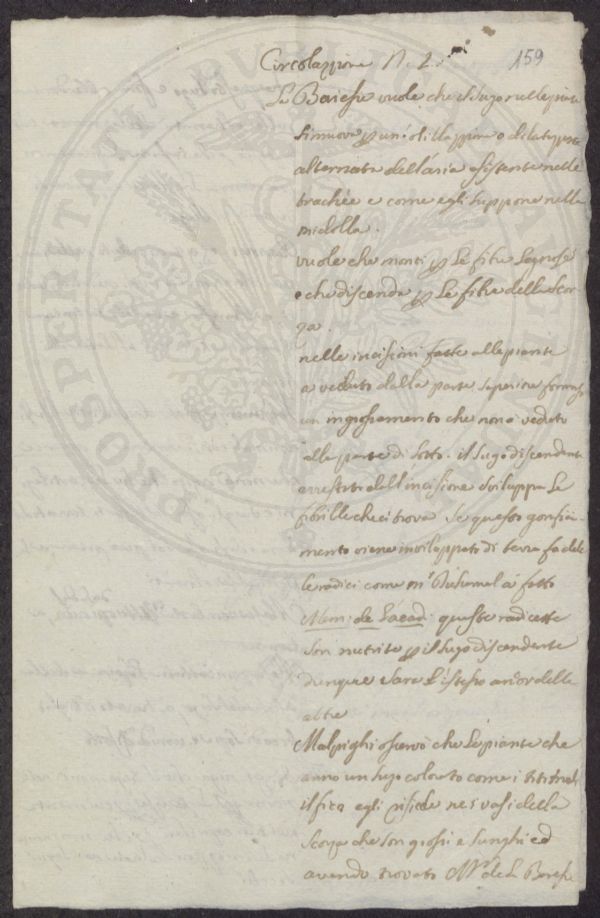 Circolazzione N. 2.
159
La Baiesse vuole che il sugo nelle piante
si muova per un' oscillazzione o
alternata dell'aria esistente nelle
trachée e come egli suppone nella
midolla.
vuole che monti per le fibre legnose
e che discenda per le fibre della scor
za.
nelle incisioni fatte alle piante
a veduto dalla parte superiore formarsi
un ingrossamento che non a veduto
alla parte di sotto. il sugo discendente
arrestato dall'incisione sviluppa le
fibrille che ci trova. Se questo gonfia-
mento viene inviluppato di terra fa delle
le radici come Mr. Duhamel à fatto
Mem. de l'acad. queste radicette
son nutrite per il sugo discendente
dunque sara l'istesso ancor delle
altre
Malpighi osservò che le piante che
anno un sugo colorato come i titimal
il fico egli risiede nei vasi della
scorza che son grossi e lunghi ed
avendo trovato Mr. de la Baiesse
PROSPERITATI PUBLICAE AUGENDAE